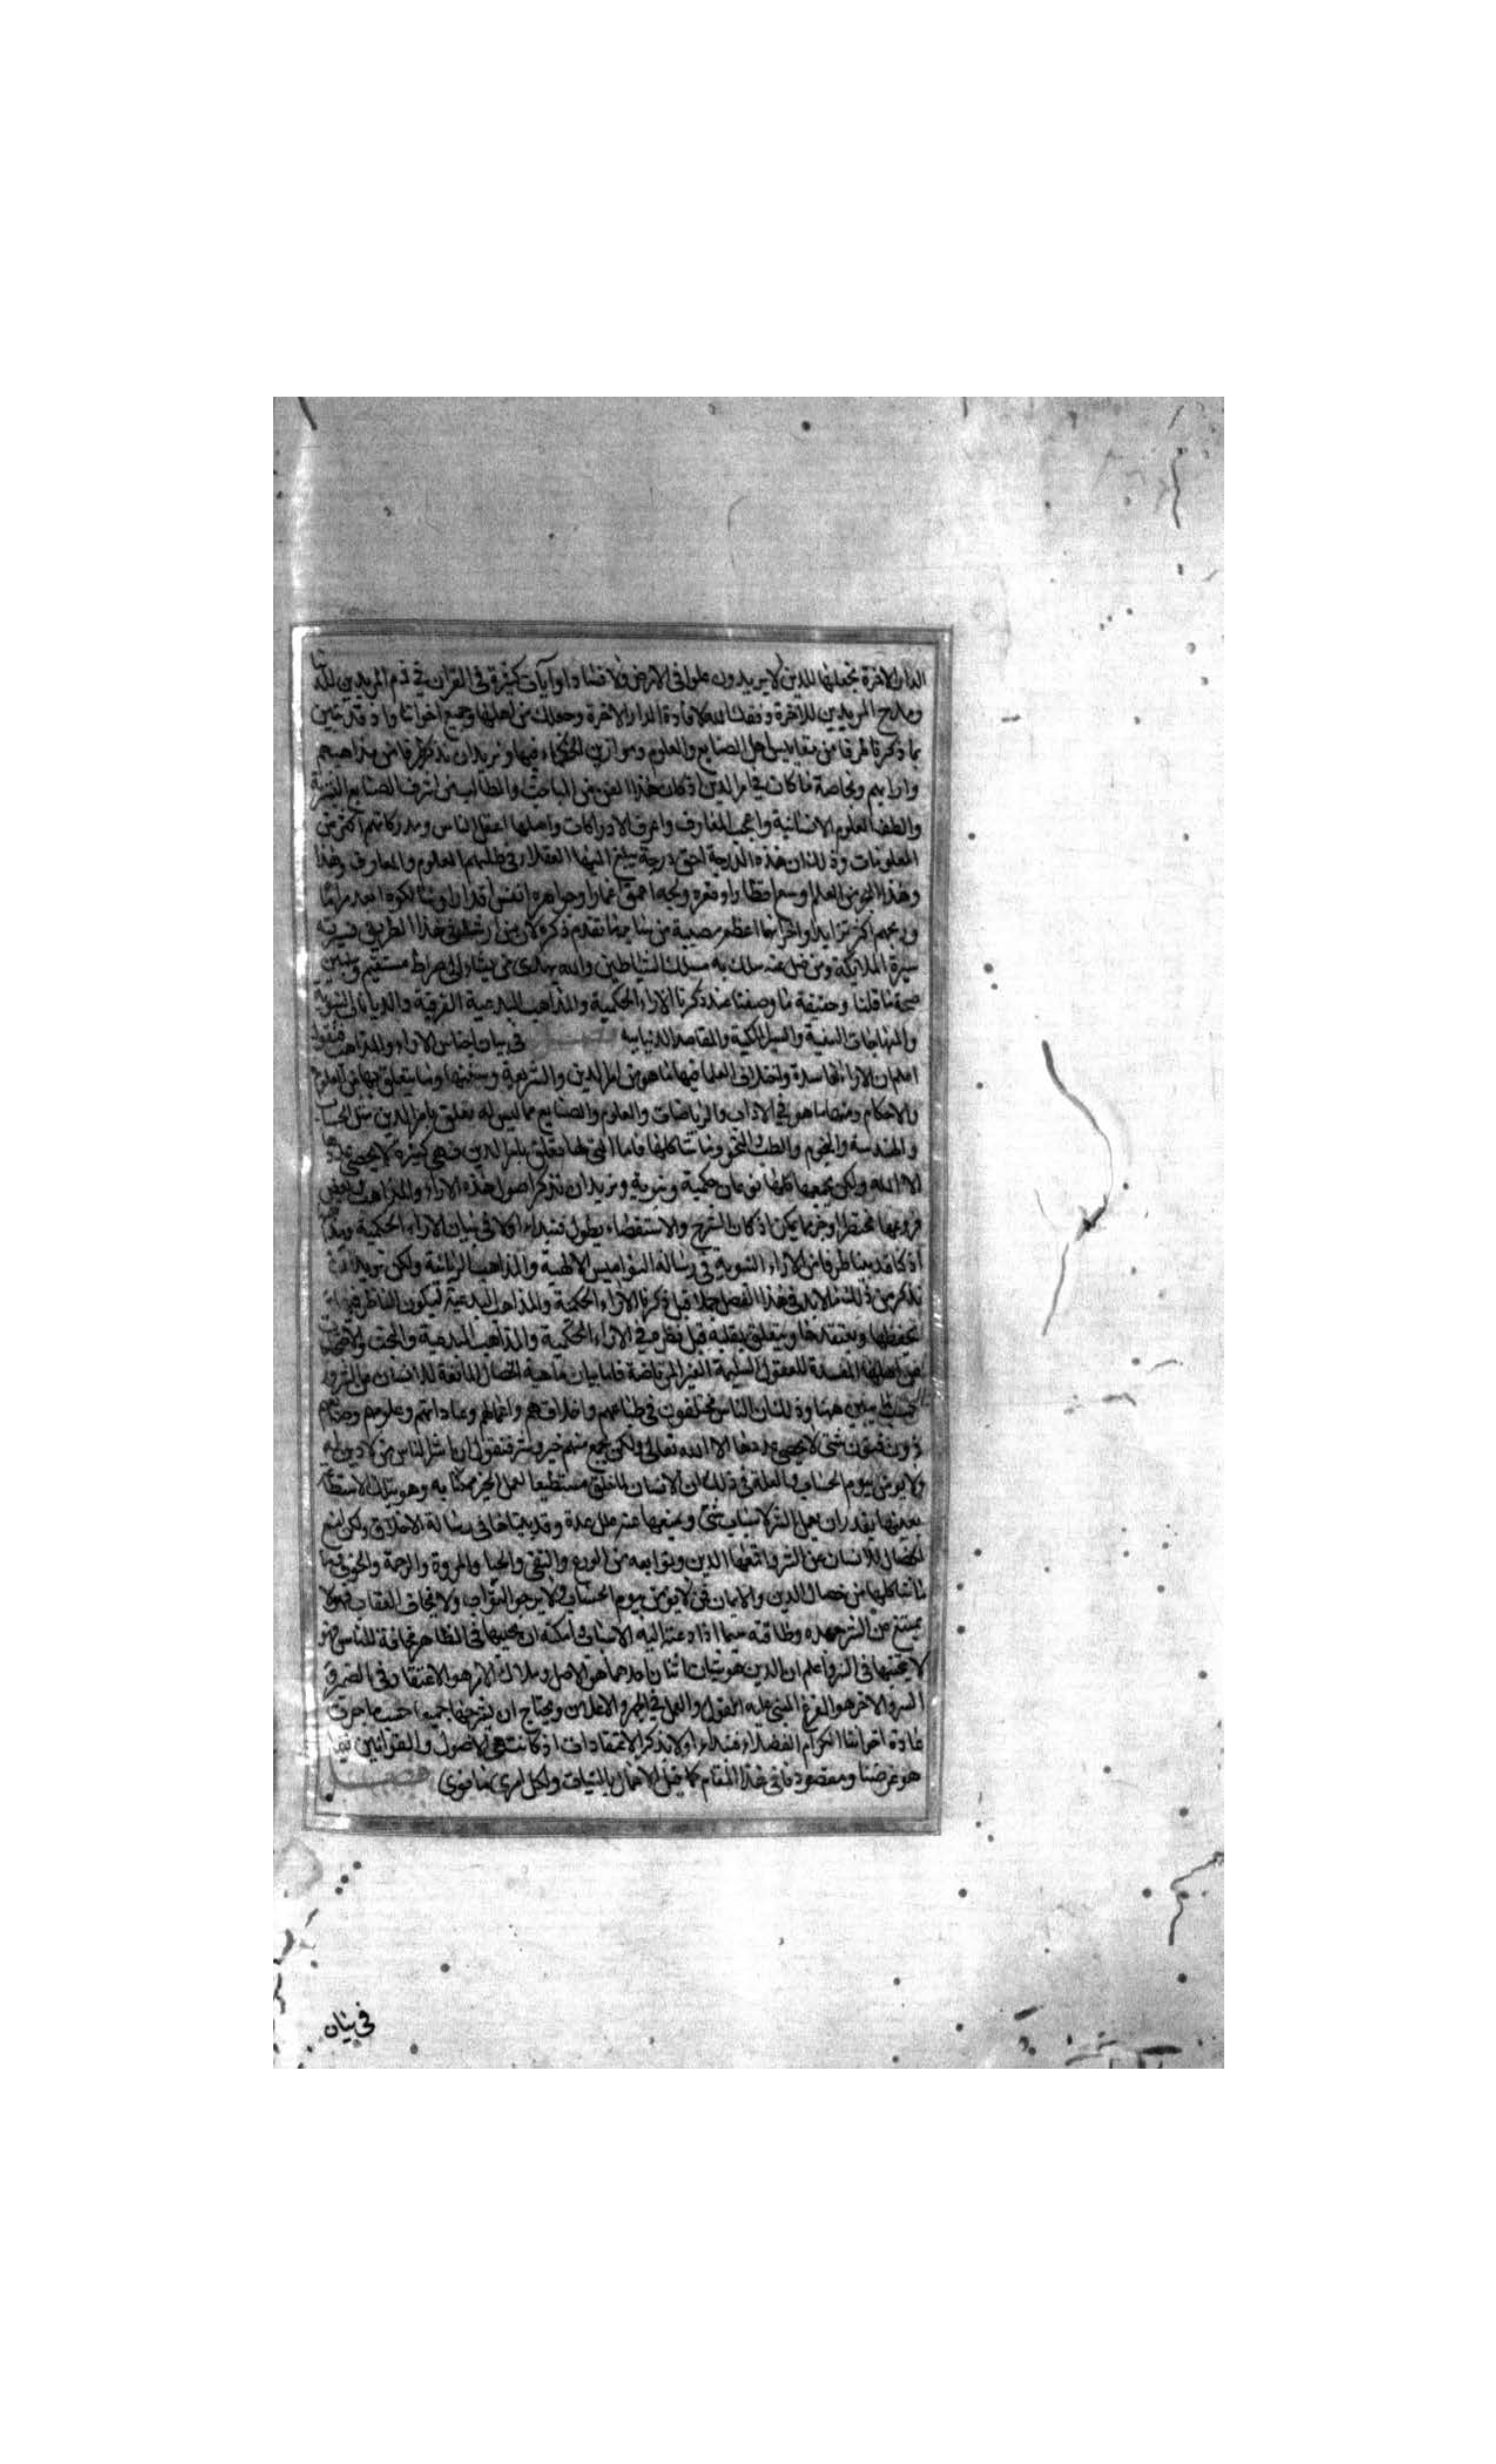 الدار الاخرة نجعلها للذين لا يريدون علوا فى الارض ولا فسادا وآيات كثيرة فى القران فى ذم المريدين للدنيا
ومدح المريدين للاخرة وفقك الله لافادة الدار الاخرة وجعلك من اهلها وجميع اخواننا واذ قد تبين
بما ذكرنا طرفا من مقاييس اهل الصنايع والعلوم وموازين الحكماء فيها ونريد ان نذكر طرفا من مذاهبهم
وارائهم وبخاصة ما كان فى امر الدين اذ كان هذا الفن من المباحث والمطالب من اشرف الصنايع البشرية
والطف العلوم الانسانية واعجب المعارف واغرق الادراكات واهلها اعقل الناس ومدركاتهم اكثر من
المعلومات وذلك ان هذه الدرجة اخر درجة يبلغ اليها العقلاء فى طلبهم العلوم والمعارف وهذا
وهذا الجر من العلم اوسع اقطارا وقعره ولجه اعمق اغمارا وجواهره انفس اقدارا وسالكوه ابعد مراما
وربحهم اكثر تزايدا والخرانها اعظم مصيبة من ساير ما تقدم ذكره لان من ارشد فى هذا الطريق فسيرته
سيرة الملايكة ومن ضل عنه سلك به مسلك الشياطين والله يهدى من يشاء الى صراط مستقيم وسنبين
صحة ما قلنا وحقيقة ما وصفنا عند ذكرنا الاراء الحكمية والمذاهب البدعية الفرقية والديانات النبوية
والمنهاجات السنية والسبل الملكية والمقاصد الدنيابيه فصل فى بيان اجناس الاراء والمذاهب فنقول
اعلم ان الاراء الفاسدة واختلاف العلما فيها ما هو من امر الدين والشريعة وسننها وما يتعلق بها من العلوم
والاحكام ومنها ما هو فى الاداب والرياضات والعلوم والصنايع مما ليس له تعلق بامر الدين مثل الحساب
والهندسة والنجوم والطب والنحو وما شاكلها فاما التى لها تعلق بامر الدين فهى كثيرة لا يحصى عددها
الا الله ولكن يجمعها كلها نوعان حكمية ونبوية ونريد ان نذكر اصول هذه الاراء والمذاهب وبعض
فروعها مختصرا وجيزا ما يمكن اذ كان الشرح والاستقصاء يطول فنبداء اولا فى بيان الاراء الحكمية
اذ كنا قد بينا طرفا من الاراء النبوية فى رسالة النواميس الالهية والمذاهب الربانية ولكن نريد ان
نذكر من ذلك ما لابد فى هذا الفصل جملا قبل ذكرنا الاراء الحكمية والمذاهب البدعية ليكون الناظر فيها
يحفظها ويعتقدها ويتعلق بقلبه قبل نظره فى الاراء الحكمية والمذاهب البدعية والبحث
عن اصلها المفسدة للعقول السليمة الغير المرتاضة فاما بيان ماهية الخصال المانعة للانسان عن الشرور
فيجب ان يبين ههنا وذلك ان الناس مختلفون فى طباعهم واخلاقهم واعمالهم وعاداتهم وعلومهم وصنايعهم
ذوو فنون شتى لا يحصى عددها الا الله تعالى ولكن يجمع منهم خير وشر فنقول ان اشر الناس من لا دين له
ولا يؤمن بيوم الحساب والعلة فى ذلك ان الانسان لما خلق مستطيعا لعمل الخير ممكنا به وهو بتلك الاستطاعة
بعينها يقدر ان يعمل الشر لاسباب شتى ويمنعها عنه علل عدة وقد بيناها فى رسالة الاخلاق ولكن امنع
الخصال للانسان عن الشر واقمعها الدين وتوابعه من الورع والتقى والحيا والمروة والرحمة والخوف وما
شاكلها من خصال الدين والايمان فمن لا يؤمن بيوم الحساب ولا يرجو الثواب ولا يخاف العقاب فهو لا
يمتنع من الشر جهده وطاقته سيما اذا دعته اليه الاسباب وامكنه ان يجنبها فى الظاهر مخافة للناس فهو
لا يجتنبها فى السر واعلم ان الدين هو شيئان اثنان احدهما هو الاصل وملاك الامر هو الاعتقاد فى الضمير
السر والاخر هو الفرع المبنى عليه القول والعمل فى الجهر والاعلان ونحتاج ان نشرحها جميعا حسب ما جرت
عادة اخواننا الكرام الفضلاء فنبداء اولا بذكر الاعتقادات اذ كانت هى الاصول والقوانين فيما
هو غرضنا ومقصودنا فى هذا المقام كما قيل الاعمال بالنيات ولكل امرئ ما نوى فصل
فى بيان